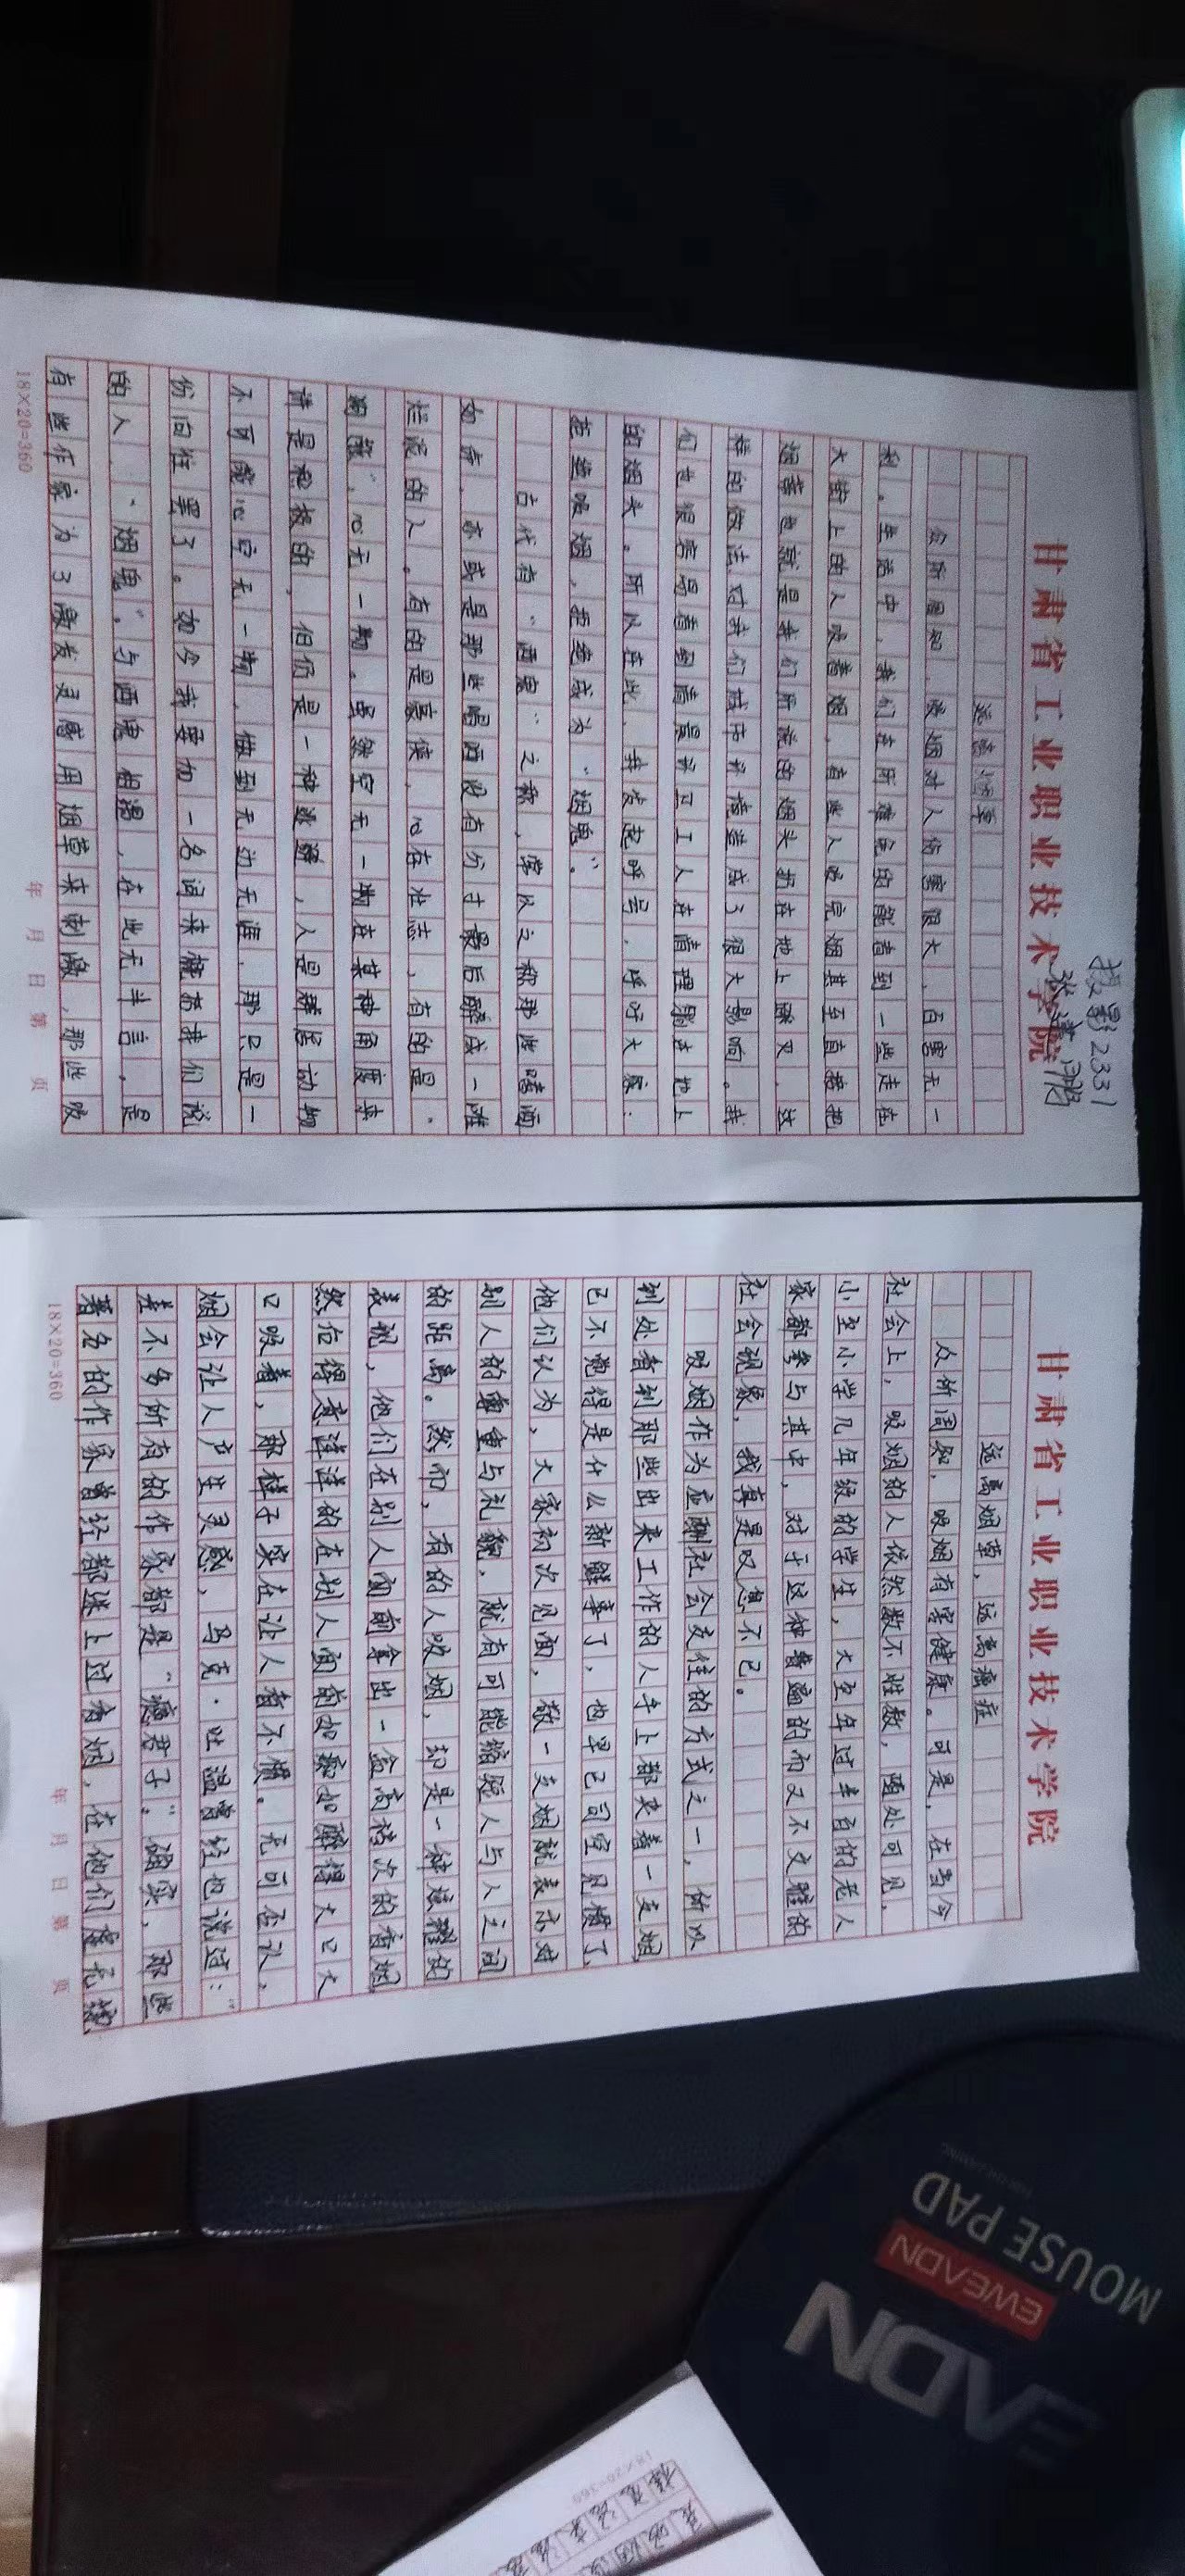 甘肃省工业职业技术学院
摄影2331
远离烟草
众所周知，吸烟对人伤害很大，百害无一
利。生活中，我们在所难免的能看到一些走在
大街上的人吸着烟，有些人吸完烟甚至直接把
烟蒂也就是我们所说的烟头扔在地上踩灭，这
样的做法对我们城市环境造成了很大影响。我
们也很容易看到清晨环卫工人在清理那些地上
的烟头。所以在此，我发起呼号，呼吁大家：
拒绝吸烟，拒绝成为“烟鬼”。
古代有“酒鬼”之称，常以之称那些嗜酒
如命，亦或是那些喝酒没有分寸最后醉成一滩
烂泥的人。有的是豪侠，心在壮志，有的是“
，心无一物。虽然空无一物在某种角度来
讲是积极的，但仍是一种逃避，人是群居动物
不可能心空无一物，做到无边无涯，那只是一
份向往罢了。如今我要加一名词来概括我们说
的人，“烟鬼”。与酒鬼相温，在此无半言，是
有些作家为了激发灵感用烟草来刺激，那些吸
18×20=360
年 月 日 第 页
甘肃省工业职业技术学院
远离烟草，远离癌症
众所周知，吸烟有害健康。可是，在当今
社会上，吸烟的人依然数不胜数，随处可见，
小至小学几年级的学生，大至年过半百的老人
家都参与其中，对于这种普遍的而又不文雅的
社会现象，我真是叹息不已。
吸烟作为应酬社会交往的方式之一，所以
到处看到那些出来工作的人手上都夹着一支烟
已不觉得是什么新鲜事了，也早已司空见惯了，
他们认为，大家初次见面，敬一支烟就表示对
别人的尊重与礼貌，就有可能缩短人与人之间
的距离。然而，有的人吸烟，却是一种炫耀的
表现，他们在别人面前拿出一盒高档次的香烟
然后得意洋洋的在别人面前如痴如醉得大口大
口吸着，那样子实在让人看不惯。无可否认，
烟会让人产生灵感，马克·吐温曾经也说过：“
差不多所有的作家都是“瘾君子”。确实，那些
著名的作家曾经都迷上过香烟，在他们
18×20=360
年 月 日 第 页
18×20=360
EADN
EWEADN
MOUSE PAD